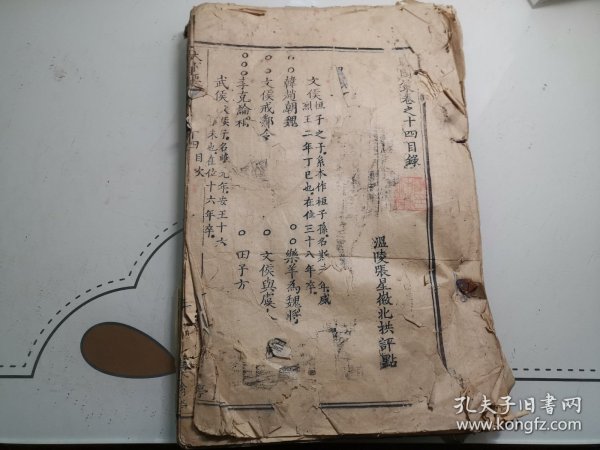 國策卷之十四目錄
溫陵張星徵北拱評點
文侯桓子之子系本作桓子孫名斯元年威
烈王二年丁巳也在位三十八年卒
韓趙朝魏
樂羊為魏將
文侯戒鄴令
文侯與虞人
李克論相
田子方
武侯文侯子名擊元年安王十六
年 未也在位十六年卒
四 目次
孔夫子旧书网
www.kongfz.com